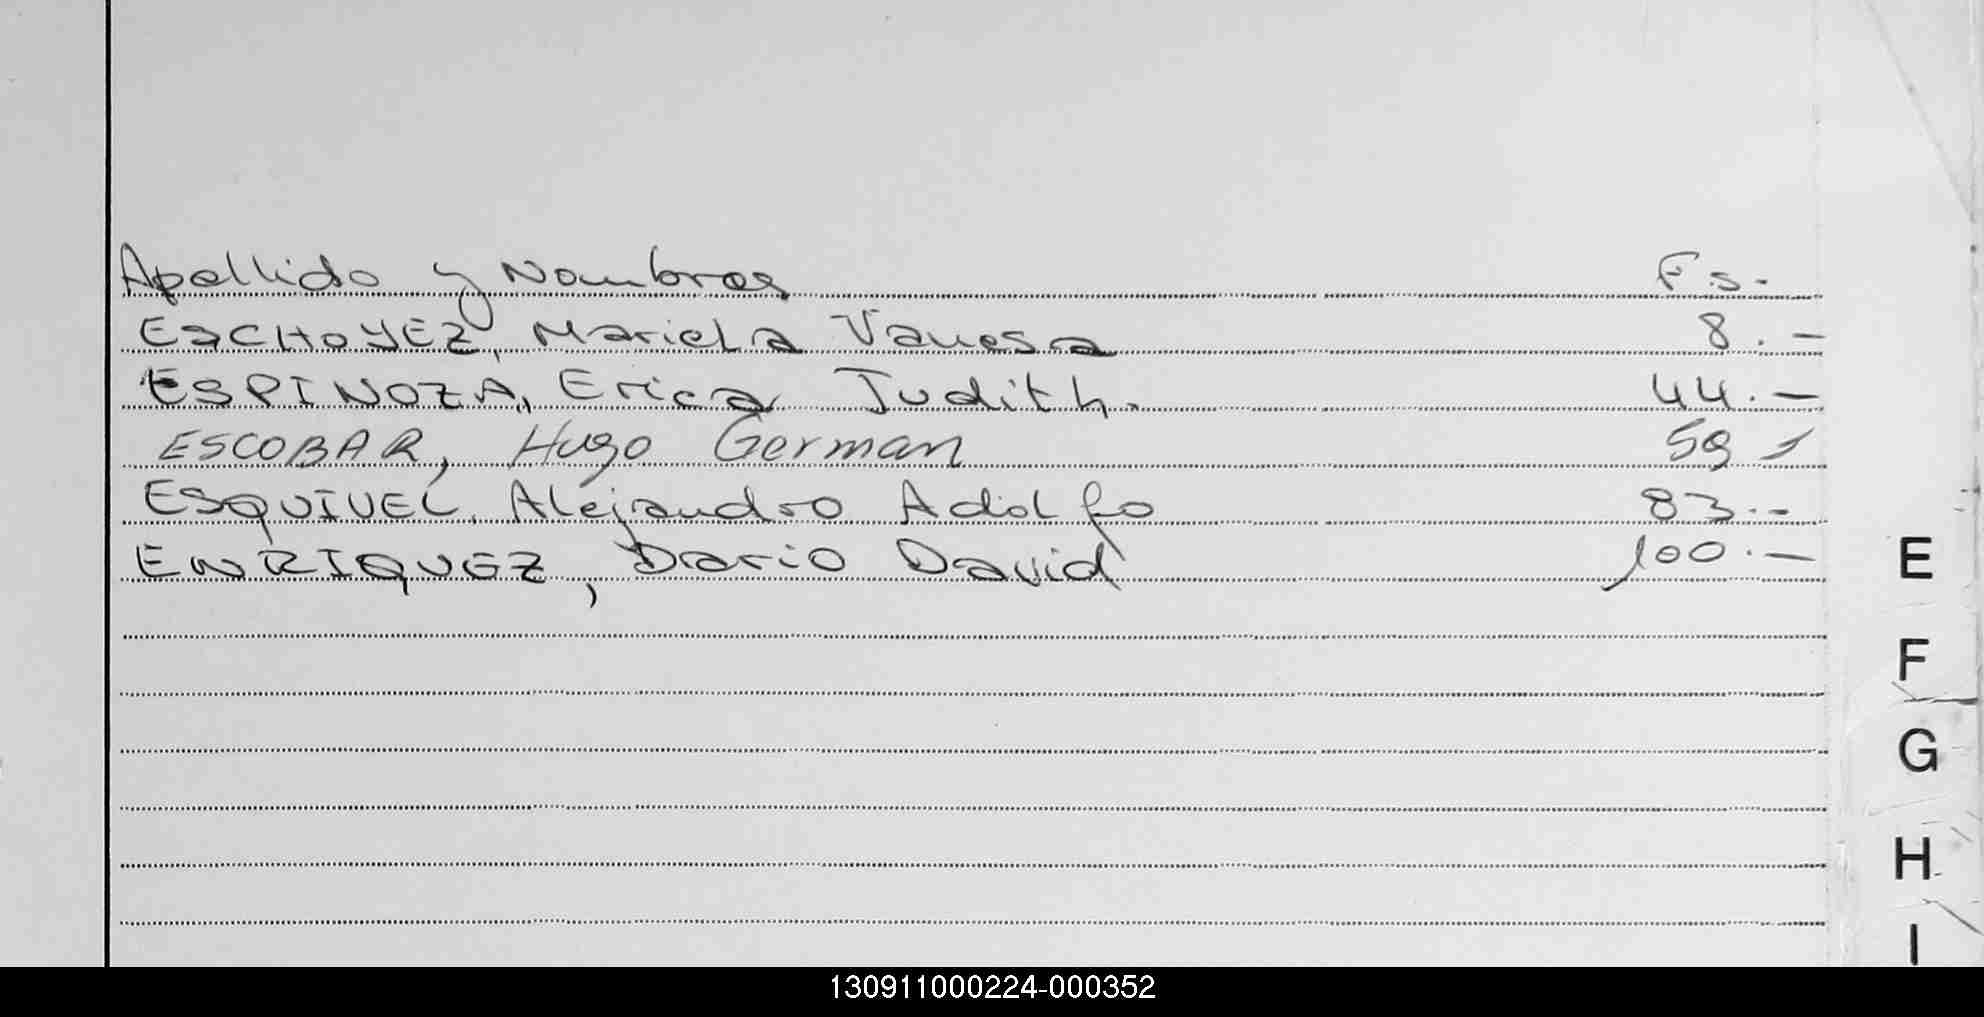 Apellido y Nombres Fs.
ESCHOYEZ, Mariela Vanesa 8.-
ESPINOZA, Erica Judith. 44.-
ESCOBAR, Hugo German 59
ESQUIVEL, Alejandro Adolfo 83.-
ENRIQUEZ, Dario David 100.-
E
F
G
H
I
130911000224-000352